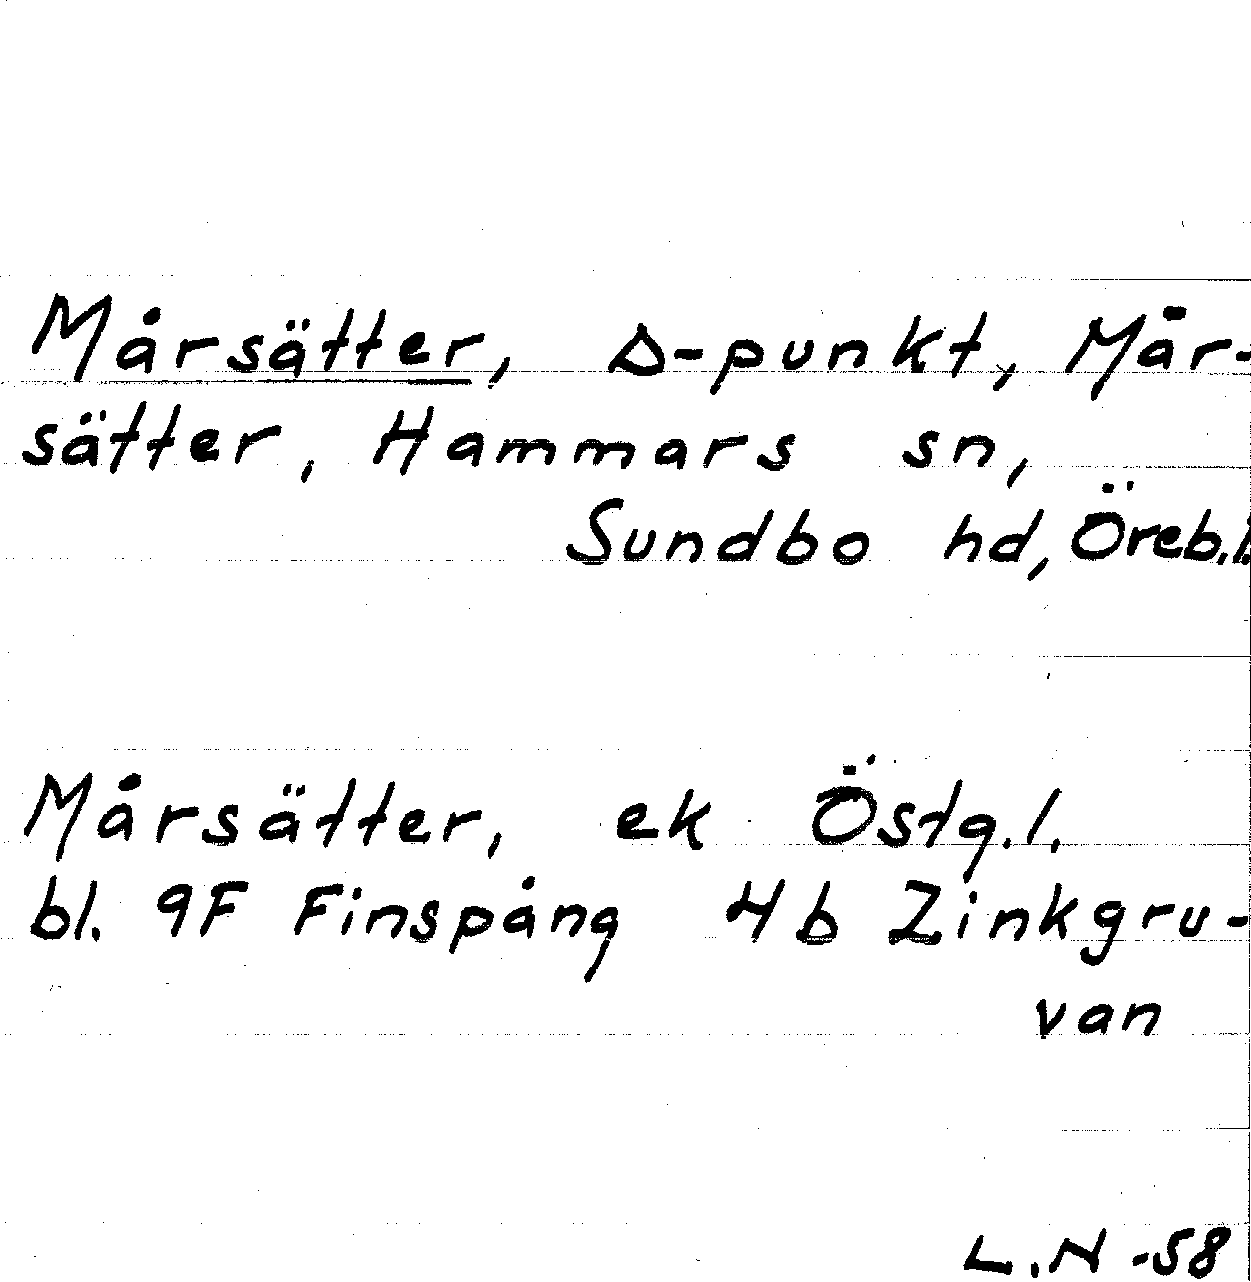 Mårsätter, Δ-punkt, Mår-
sätter, Hammars sn,
Sundbo hd, Öreb.l.
Mårsätter, ek Östg.l.
bl. 9F Finspång 4b Zinkgru-
van
L.N -58